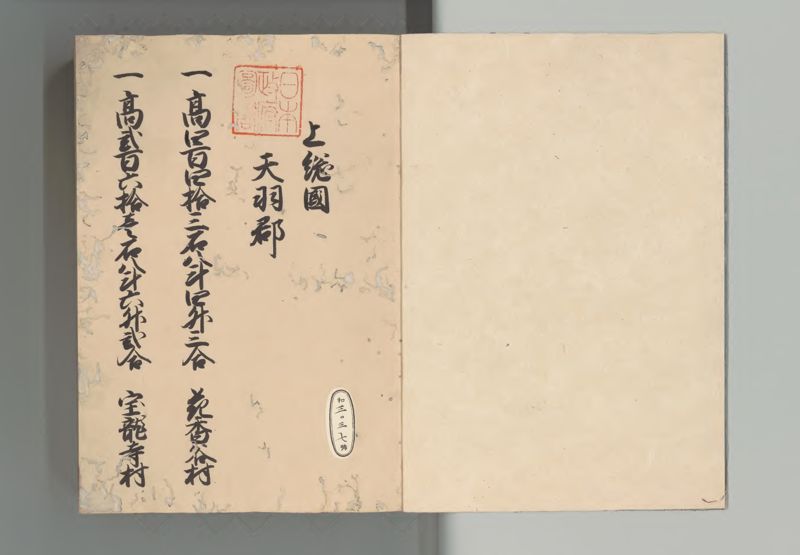 上総國
天羽郡
一高四百四拾三石八斗四升三合 花香谷村
一高弐百六拾壱石八斗六升弐合 宝龍寺村
日本
政府